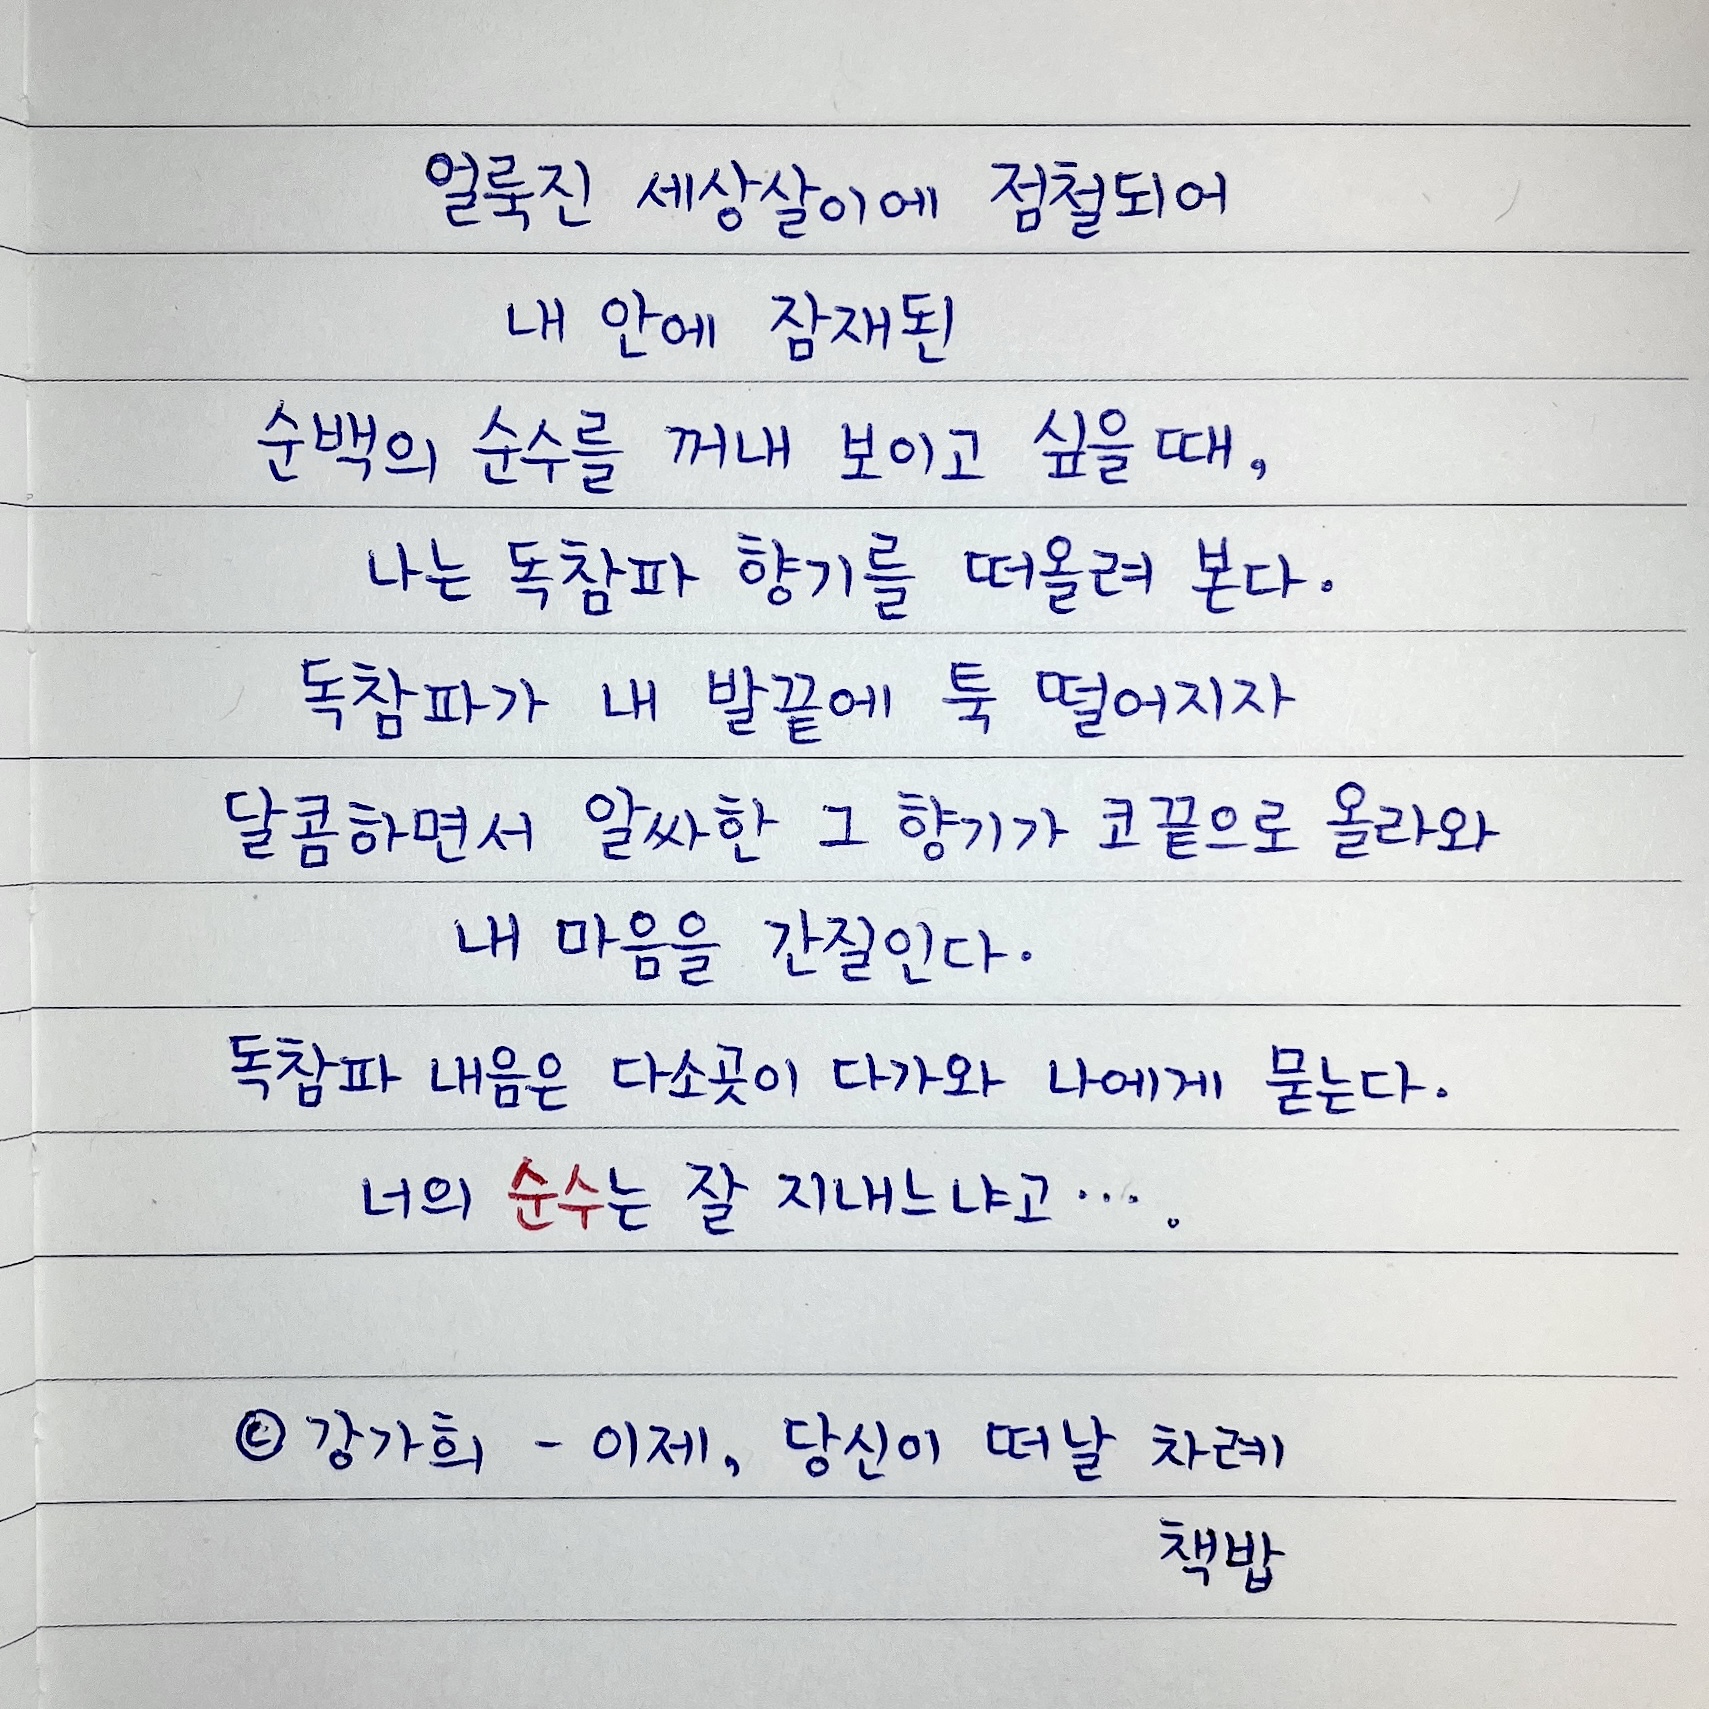 얼룩진 세상살이에 점철되어
내 안에 잠재된
순백의 순수를 꺼내 보이고 싶을 때,
나는 독참파 향기를 떠올려 본다.
독참파가 내 발끝에 툭 떨어지자
달콤하면서 알싸한 그 향기가 코끝으로 올라와
내 마음을 간질인다.
독참파 내음은 다소곳이 다가와 나에게 묻는다.
너의 순수는 잘 지내느냐고….
© 강가희 - 이제, 당신이 떠날 차례
책밥